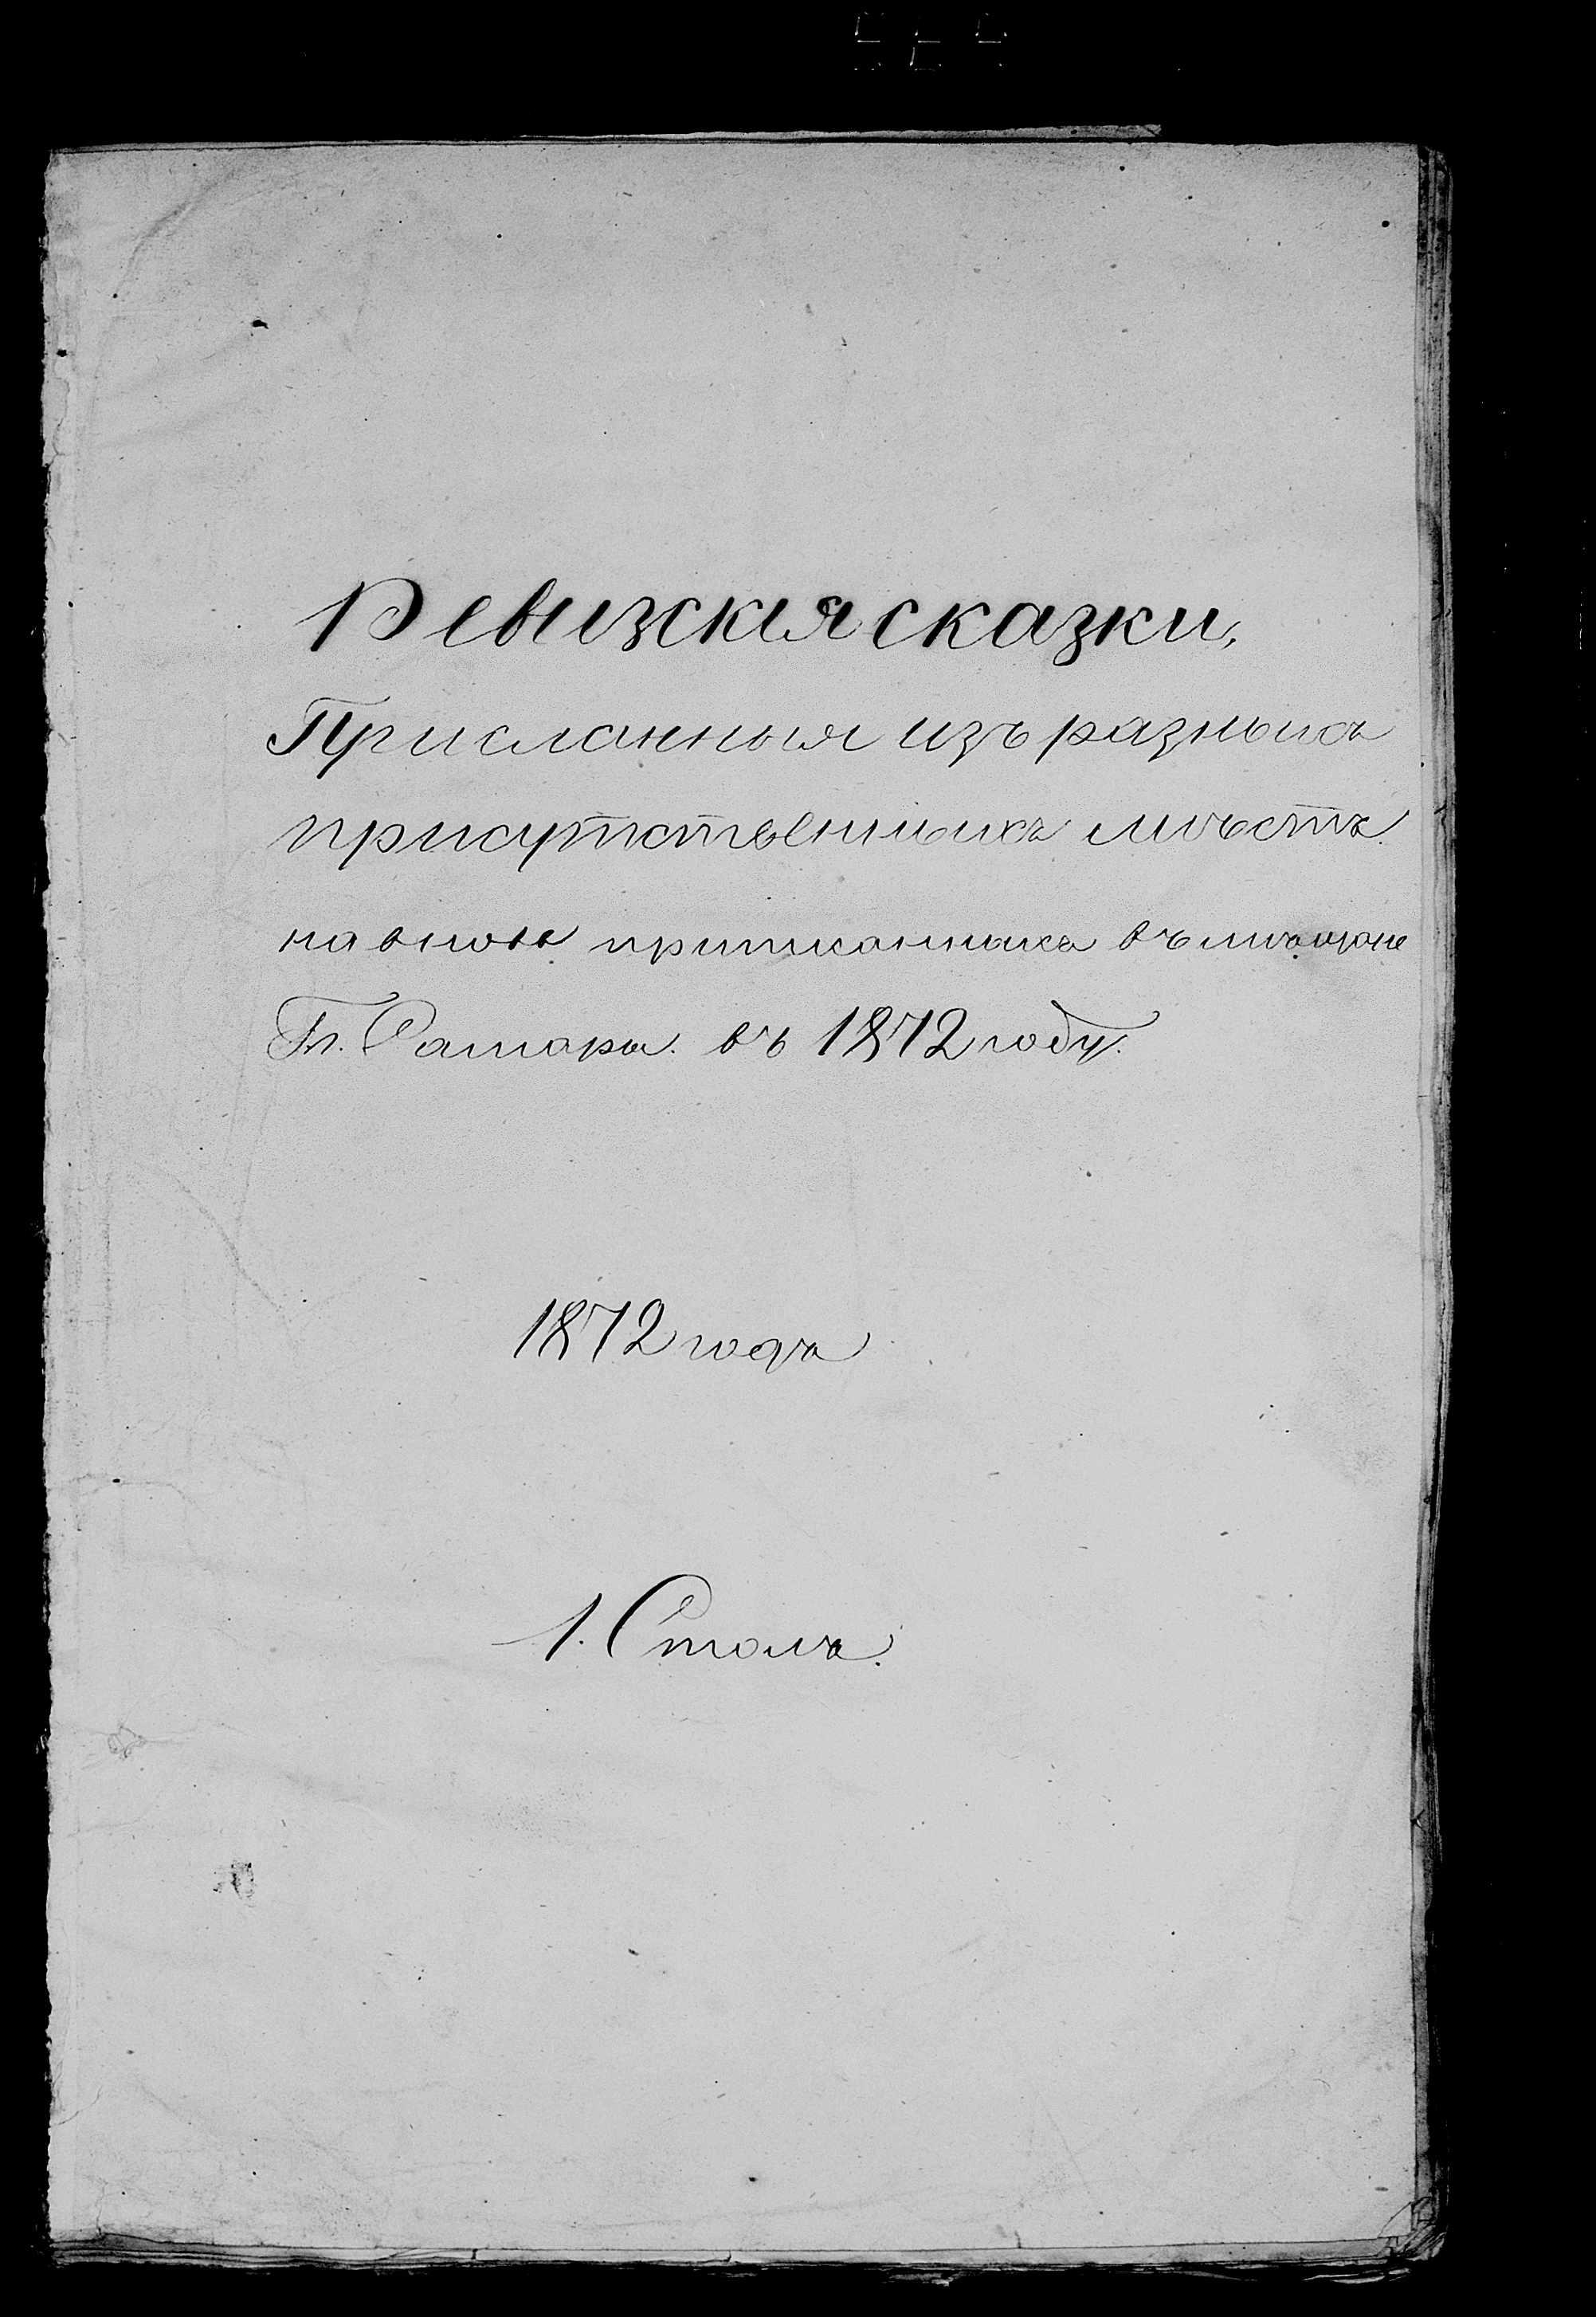 Ревизскія сказки,
Присланныя изъ разныхъ
присутственныхъ мѣстъ
на вновь приписанныхъ въ мѣщане
Гл. Самары. въ 1872 году.
1872 года
1. Столъ.